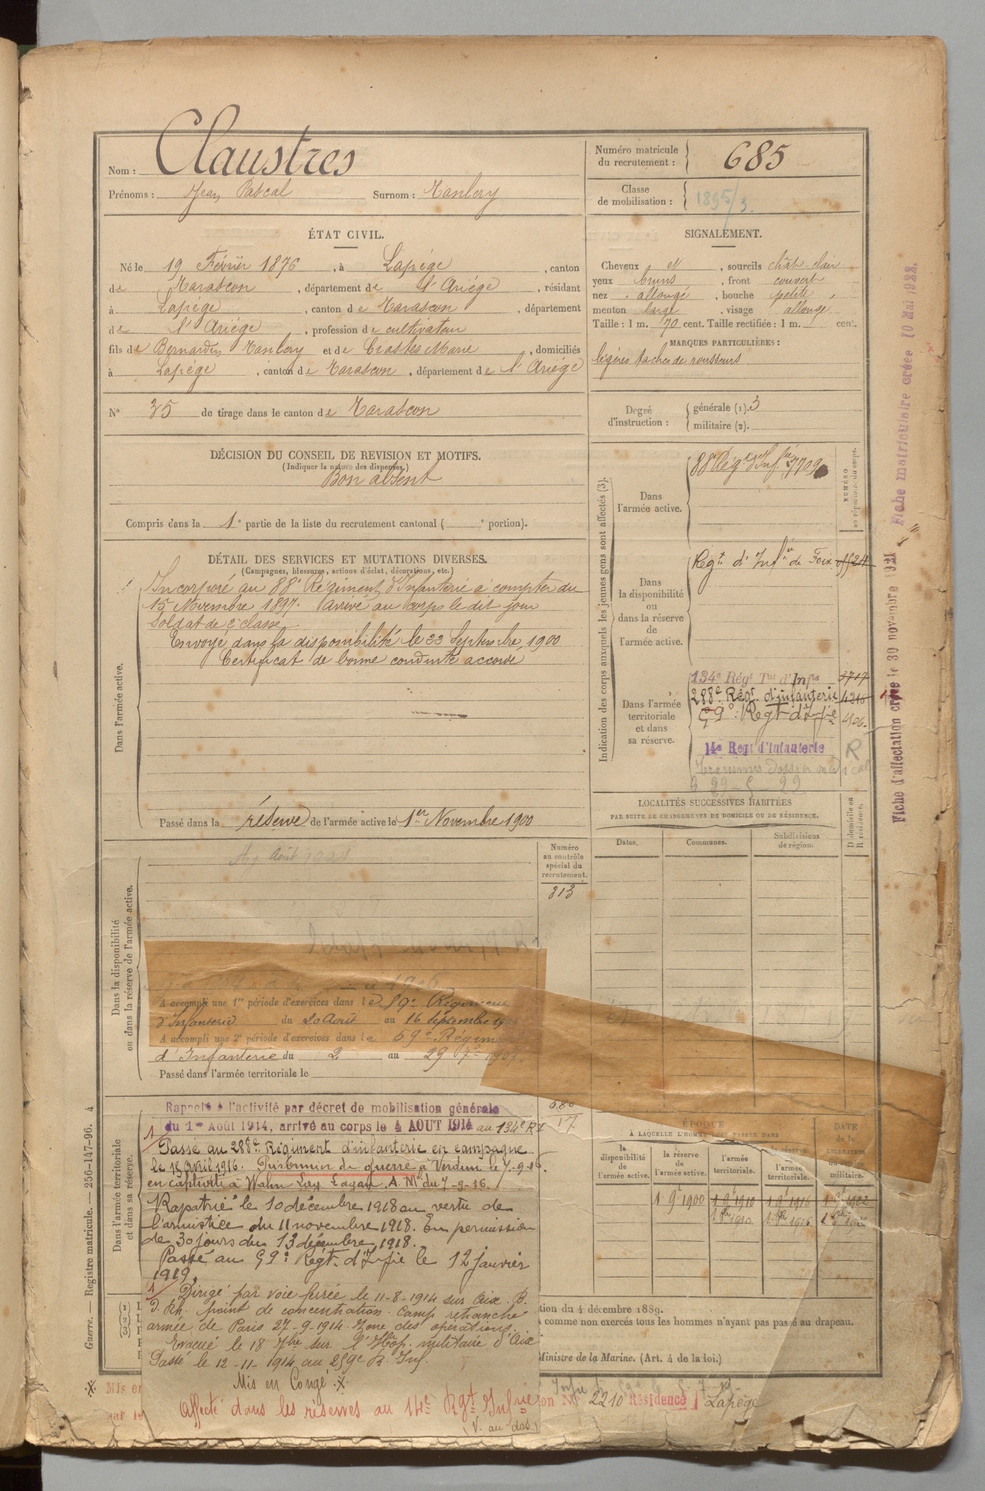 Nom : Claustres
Prénoms : Jean Pascal Surnom : Tanlery
Numéro matricule du recrutement : 685
Classe de mobilisation : 1895/3
ÉTAT CIVIL.
Né le 19 Février 1876, à Lapége, canton
de Tarascon, département de l'Ariége, résidant
à Lapége, canton de Tarascon, département
de l'Ariége, profession de cultivateur
fils de Bernardin Tanlery et de Crastes Marie, domiciliés
à Lapége, canton de Tarascon, département de l'Ariége
N° 35 de tirage dans le canton de Tarascon
SIGNALEMENT.
Cheveux et, sourcils chât. clair
yeux bruns, front couvert
nez allongé, bouche petite
menton large, visage allongé
Taille : 1 m. 70 cent. Taille rectifiée : 1 m. cent.
MARQUES PARTICULIÈRES :
légères taches de rousseurs
Degré d'instruction : générale (1). 3
militaire (2).
DÉCISION DU CONSEIL DE REVISION ET MOTIFS.
(Indiquer la nature des dispenses.)
Bon absent
Compris dans la 1e partie de la liste du recrutement cantonal ( e portion).
DÉTAIL DES SERVICES ET MUTATIONS DIVERSES.
(Campagnes, blessures, actions d'éclat, décorations, etc.)
Dans l'armée active.
Incorporé au 88e Régiment d'Infanterie à compter du
15 Novembre 1897. Arrivé au corps le dit jour
Soldat de 2e classe
Envoyé dans la disponibilité le 22 Septembre 1900
Certificat de bonne conduite accordé
Passé dans la réserve de l'armée active le 1er Novembre 1900
Indication des corps auxquels les jeunes gens sont affectés (3).
NUMÉRO au répertoire du corps.
Dans l'armée active.
88e Régt d'Infie 7709
Dans la disponibilité ou dans la réserve de l'armée active.
Regt d'Infie de Foix
Dans l'armée territoriale et dans sa réserve.
134e Régt Tal d'Infie
288e Régt d'infanterie 4316
59e Regt d'Infie
14e Regt d'Infanterie R
LOCALITÉS SUCCESSIVES HABITÉES
PAR SUITE DE CHANGEMENTS DE DOMICILE OU DE RÉSIDENCE.
Dates. Communes. Subdivisions de région. D domicile ou R résidence.
Dans la disponibilité ou dans la réserve de l'armée active.
Août
Numéro au contrôle spécial du recrutement.
313
A accompli une 1re période d'exercices dans le 59e Régiment
d'Infanterie du 20 Août au 16 septembre
A accompli une 2e période d'exercices dans le 59e Régiment
d'Infanterie du 2 au 29
Passé dans l'armée territoriale le
Dans l'armée territoriale et dans sa réserve.
Rappelé à l'activité par décret de mobilisation générale
du 1er Août 1914, arrivé au corps le 4 AOUT 1914 au 134e RT
Passé au 288e Régiment d'infanterie en campagne
le 18 Avril 1916. Prisonnier de guerre à Verdun le 7-9-16.
en captivité à Wahn
Rapatrié le 10 décembre 1918 en vertu de
l'armistice du 11 novembre 1918. En permission
de 30 jours du 13 décembre 1918.
Passé au 59e Regt. d'Infie le 12 janvier
1919.
Dirigé par voie ferrée le 11-8-1914 sur Aix. B.
D. Rh. point de concentration. Camp retranché
armée de Paris 27-9-1914. Zone des opérations.
Evacué le 18 7bre sur l'Hôp. militaire d'Aix
Passé le 12-11-1914 au 259e R. Inf.
Mis en Congé
affecté dans les réserves au 14e Rgt Infrie
(V. au dos)
17
ÉPOQUE
À LAQUELLE L'HOMME
la disponibilité de l'armée active. la réserve de l'armée active. l'armée territoriale. la réserve de l'armée territoriale. DATE de la militaire.
1 9e 1900
tion du 4 décembre 1889.
comme non exercés tous les hommes n'ayant pas passé au drapeau.
Ministre de la Marine. (Art. 4 de la loi.)
2210 Résidence Lapége
Mis en
Guerre. — Registre matricule. — 256-147-96. 4
Fiche d'affectation créée le 30 novembre 1921
Fiche matriculaire créée 10 Mai 1922.